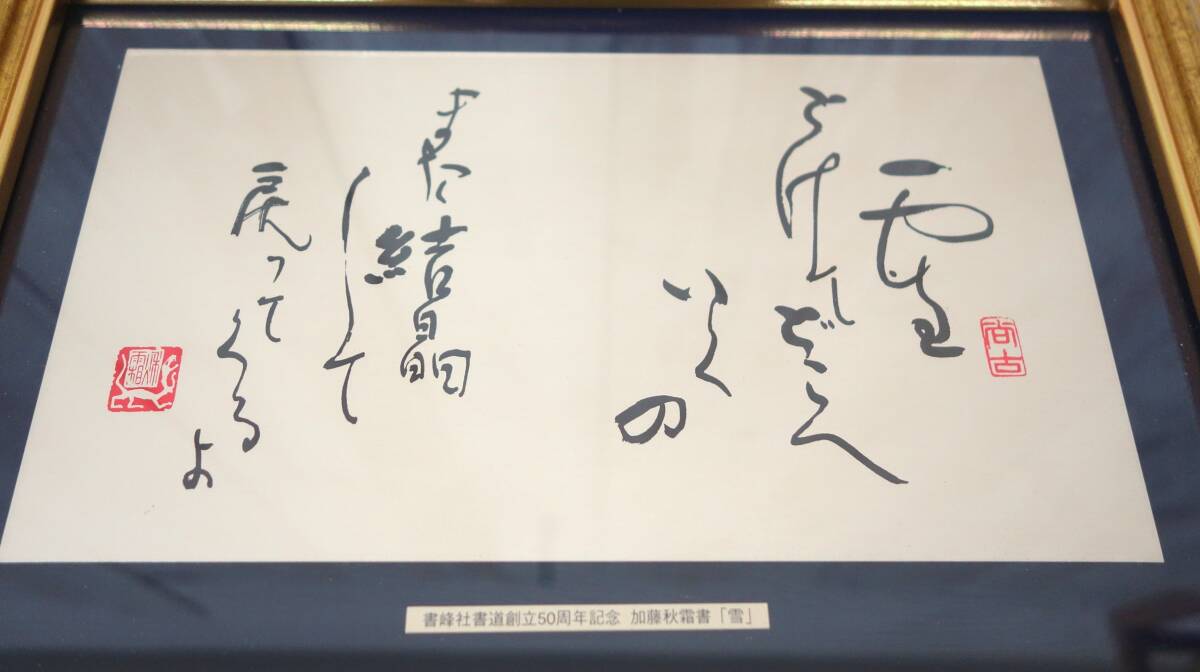 雪
とけてどこへ
いくの
また結晶
して
戻って
くる
よ
尚古
秋霜
書峰社書道創立50周年記念 加藤秋霜書「雪」